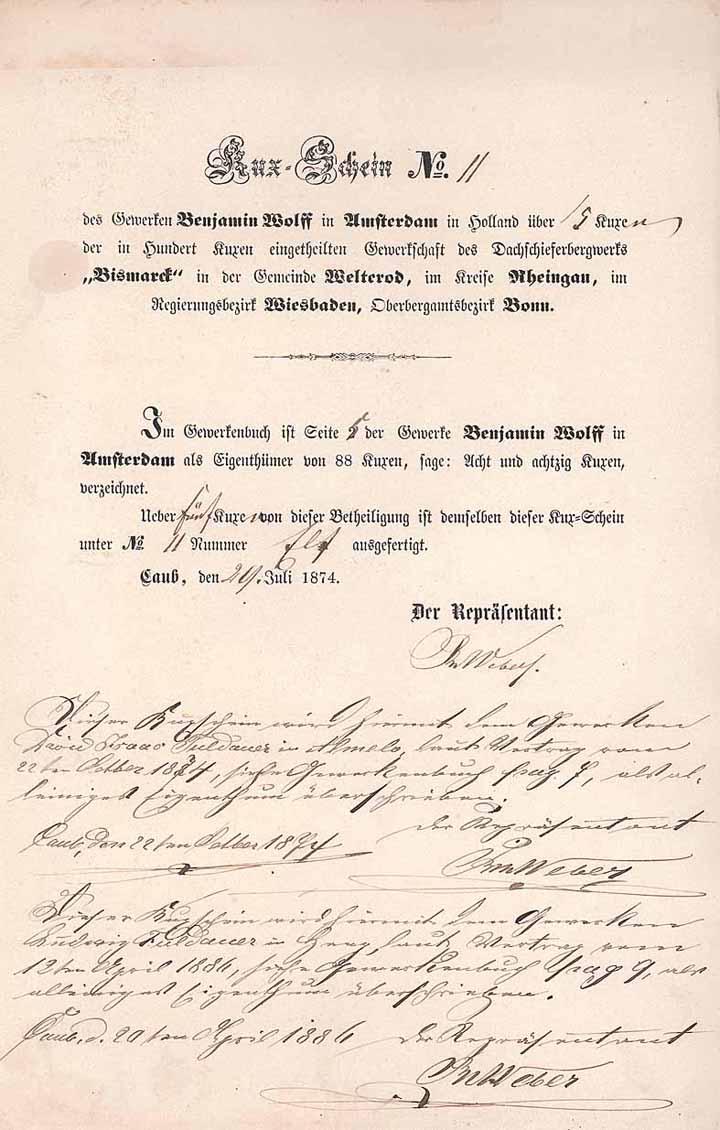 Kux-Schein No. 11
des Gewerken Benjamin Wolff in Amsterdam in Holland über 5 Kuxen
der in Hundert Kuxen eingetheilten Gewerkschaft des Dachschieferbergwerks
„Bismarck“ in der Gemeinde Welterod, im Kreise Rheingau, im
Regierungsbezirk Wiesbaden, Oberbergamtsbezirk Bonn.
Im Gewerkenbuch ist Seite 5 der Gewerke Benjamin Wolff in
Amsterdam als Eigenthümer von 88 Kuxen, sage: Acht und achtzig Kuxen,
verzeichnet.
Ueber fünf Kuxen von dieser Betheiligung ist demselben dieser Kux-Schein
unter No 11 Nummer Elf ausgefertigt.
Caub, den 29. Juli 1874.
Der Repräsentant:
Weber.
Dieser Kuxschein wird hiermit dem Gewerken
Isaac Fuldauer in Almelo, laut Vertrag vom
22ten October 1874, siehe Gewerkenbuch pag. 7, als al-
leiniges Eigenthum überschrieben.
Caub, den 22ten October 1874
der Repräsentant
Weber
Dieser Kuxschein wird hiermit dem Gewerken
Ludwig Fuldauer in laut Vertrag vom
12ten April 1886, siehe Gewerkenbuch pag 9, als
alleiniges Eigenthum überschrieben.
Caub, d. 20ten April 1886
der Repräsentant
Weber